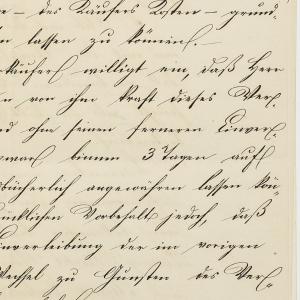 – des Käufers Kosten – grund-
lassen zu können. –
käufer willigt ein, daß Herr
von ihm kraft dieses Ver-
ohne seinen ferneren Einver-
binnen 3 Tagen auf
bücherlich angewähren lassen kön-
Vorbehalt jedoch, daß
inverleibung der im vorigen
Wechsel zu Gunsten des Ver-